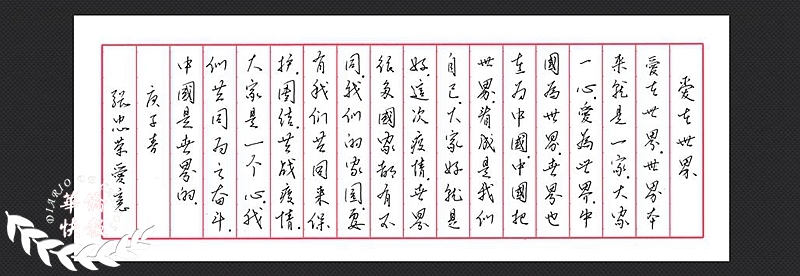 爱在世界
爱在世界.世界本
来就是一家.大家
一心.爱為世界.中
國為世界.世界也
在为中國.中國把
世界.看成是我们
自己.大家好就是
好.這次疫情.世界
很多國家都有不
同.我们的家園.要
有我们共同来保
护.團结.共战疫情.
大家是一个心.我
们共同为之奋斗.
中國是世界的.
庚子春
张忠荣爱意
DIARIO
華
快